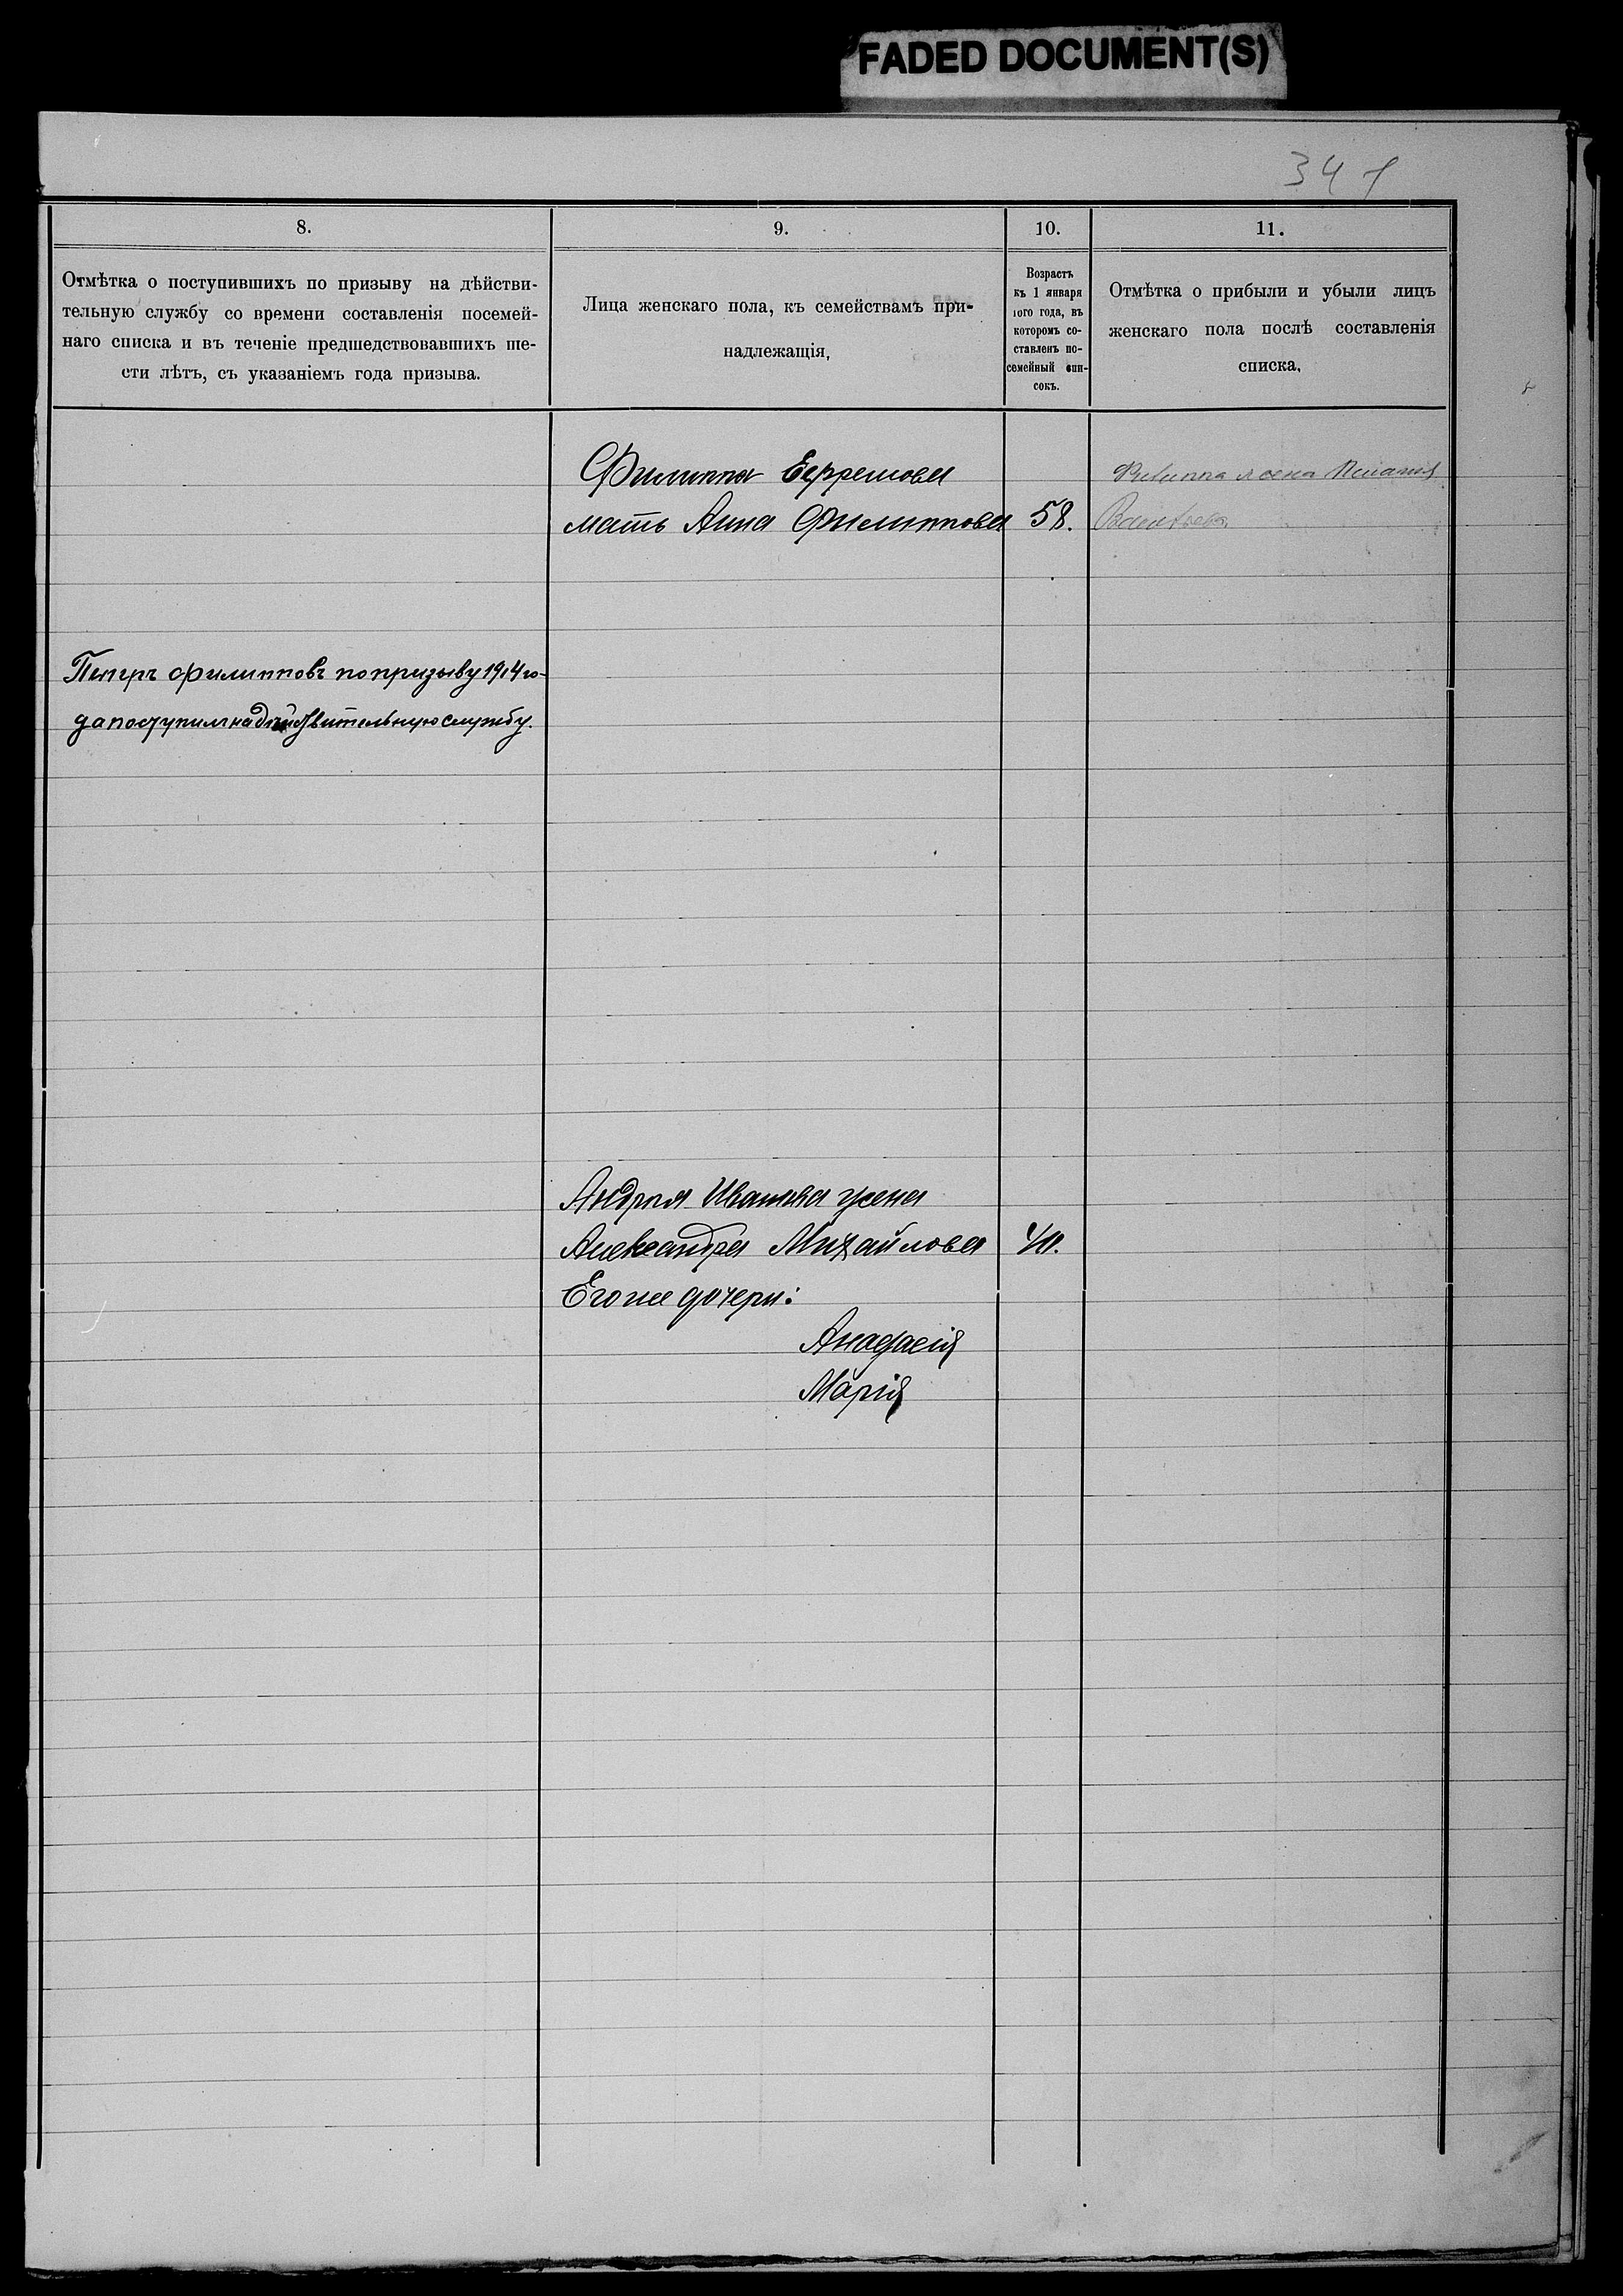 FADED DOCUMENT(S)
34
8.
Отмѣтка о поступившихъ по призыву на дѣйстви-
тельную службу со времени составленія посемей-
наго списка и въ теченіе предшедствовавшихъ ше-
сти лѣтъ, съ указаніемъ года призыва.
9.
Лица женскаго пола, къ семействамъ при-
надлежащія,
10.
Возрастъ
къ 1 января
того года, въ
которомъ со-
ставленъ по-
семейный спи-
сокъ.
11.
Отмѣтка о прибыли и убыли лицъ
женскаго пола послѣ составленія
списка,
Филиппа Ефремова
Филиппа жена
мать Анна Филиппова 58.
Петръ Филипповъ по призыву 1914 го-
да поступилъ на дѣйствительную службу.
Андрея Иванова жена
Александра Михайлова 40.
Его же дочери:
Анастасія
Марія